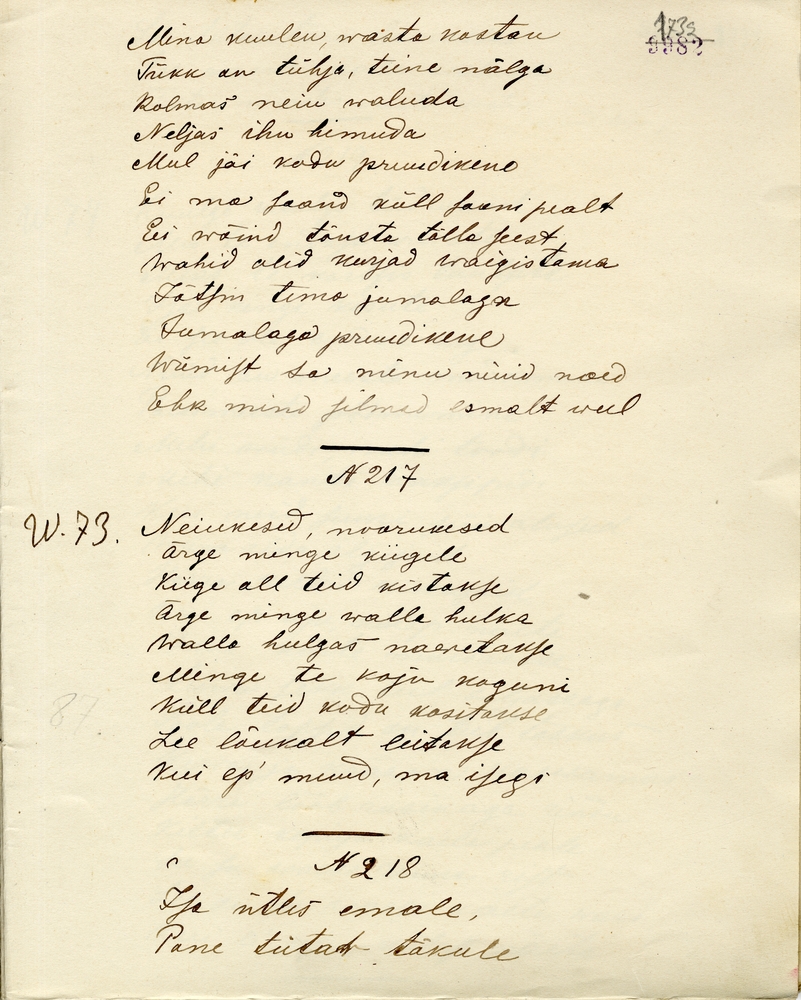 1732
9982
Mina kuulen, wasta kostan
Tükk on tühja, teine nälga
Kolmas neiu waluda
Neljas ihu himuda
Mul jäi kodu pruudikene
Ei ma saand küll saani pealt
Ei wõind tõusta tõlla seest
Wahid olid kurjad waigistama
Jätsin tema jumalaga
Jumalaga pruudikene
Wiimist sa minu nüüd näed
Ehk mind silmad esmalt weel
N 217
W. 73. Neiukesed, noorukesed
Ärge minge kiigele
Kiige all teid kistakse
Ärge minge walla hulka
Walla hulgas naeretakse
Minge te koju koguni
Küll teid kodu kositakse
Lee lõukalt leitakse
87
Kui ep' muud, ma isegi
N 218
Isa ütles emale,
Pane tütar tõkule